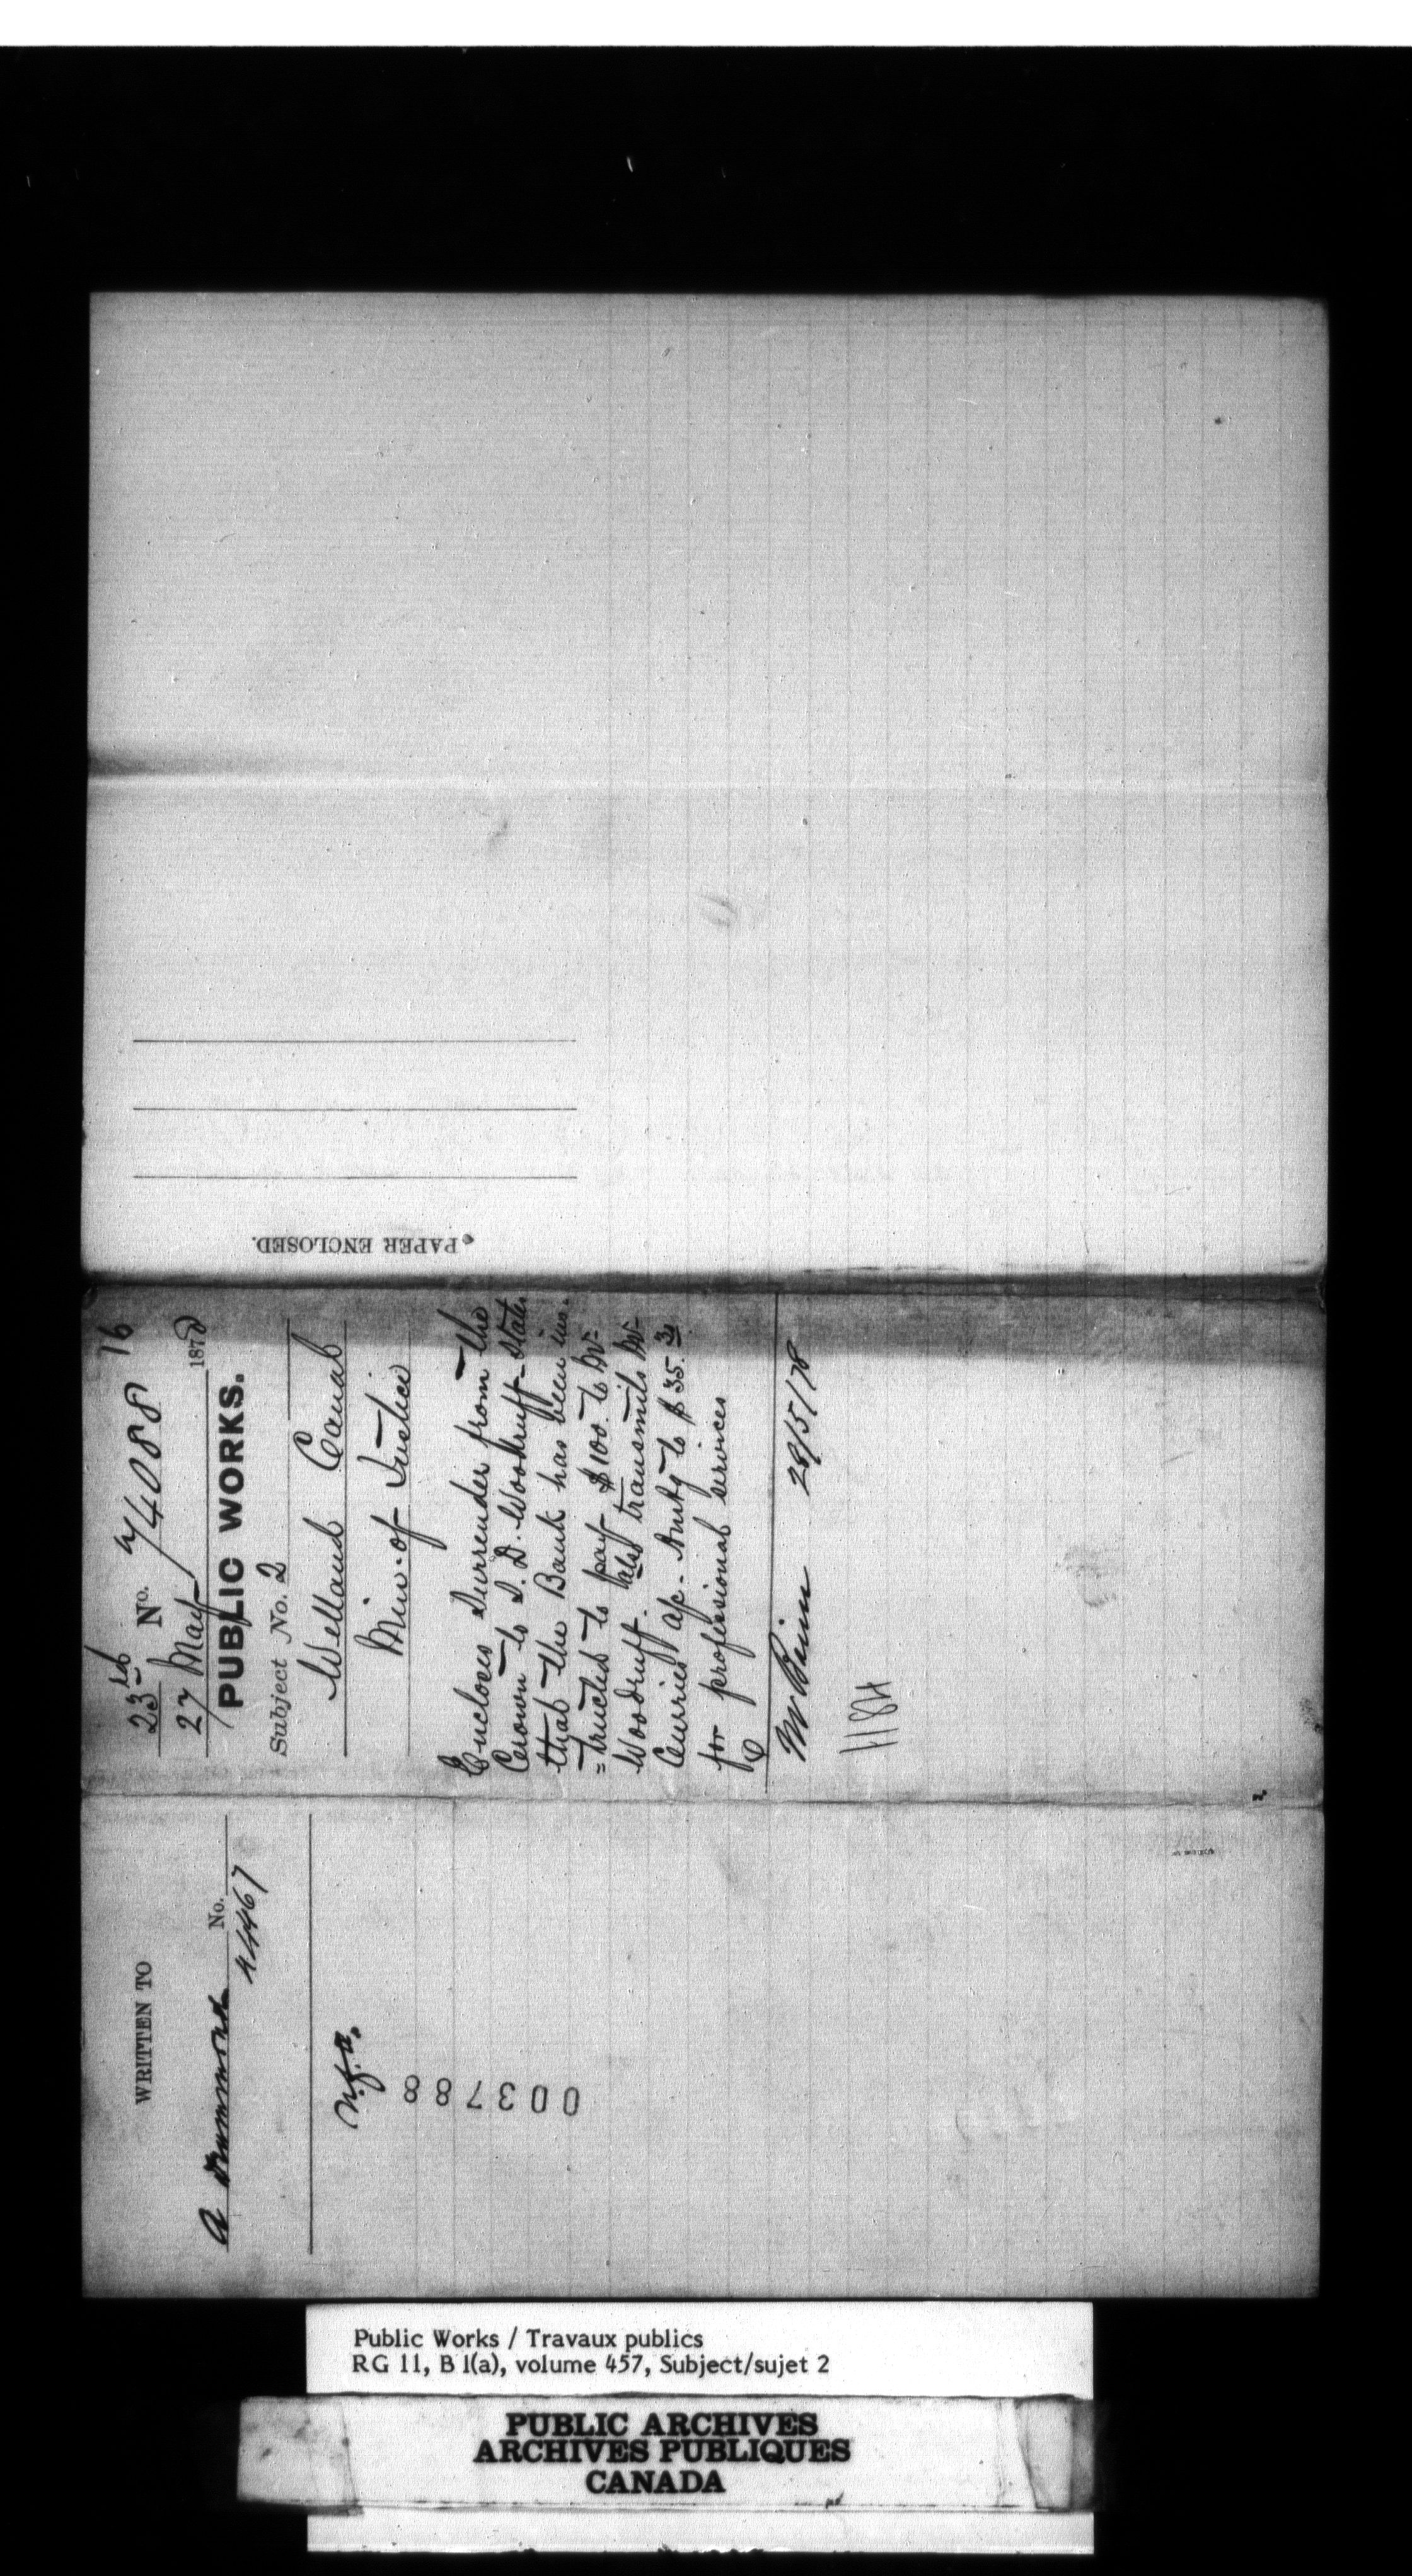 PAPER ENCLOSED.
23rd No. 74088 76
27 May 1878
PUBLIC WORKS.
Subject No. 2
Welland Canal
Min. of Justice
Encloses Surrender from the
Crown to S. D. Woodruff - states
that the Bank has been ins-
=tructed to pay $100. to Mr
Woodruff. also transmits Mr
Currie's a/c. Amtg to $35.
for professional services
28/5/78
1184
WRITTEN TO
A Drummond No.
44467
n.f.a.
003788
Public Works / Travaux publics
RG 11, B 1(a), volume 457, Subject/sujet 2
PUBLIC ARCHIVES
ARCHIVES PUBLIQUES
CANADA